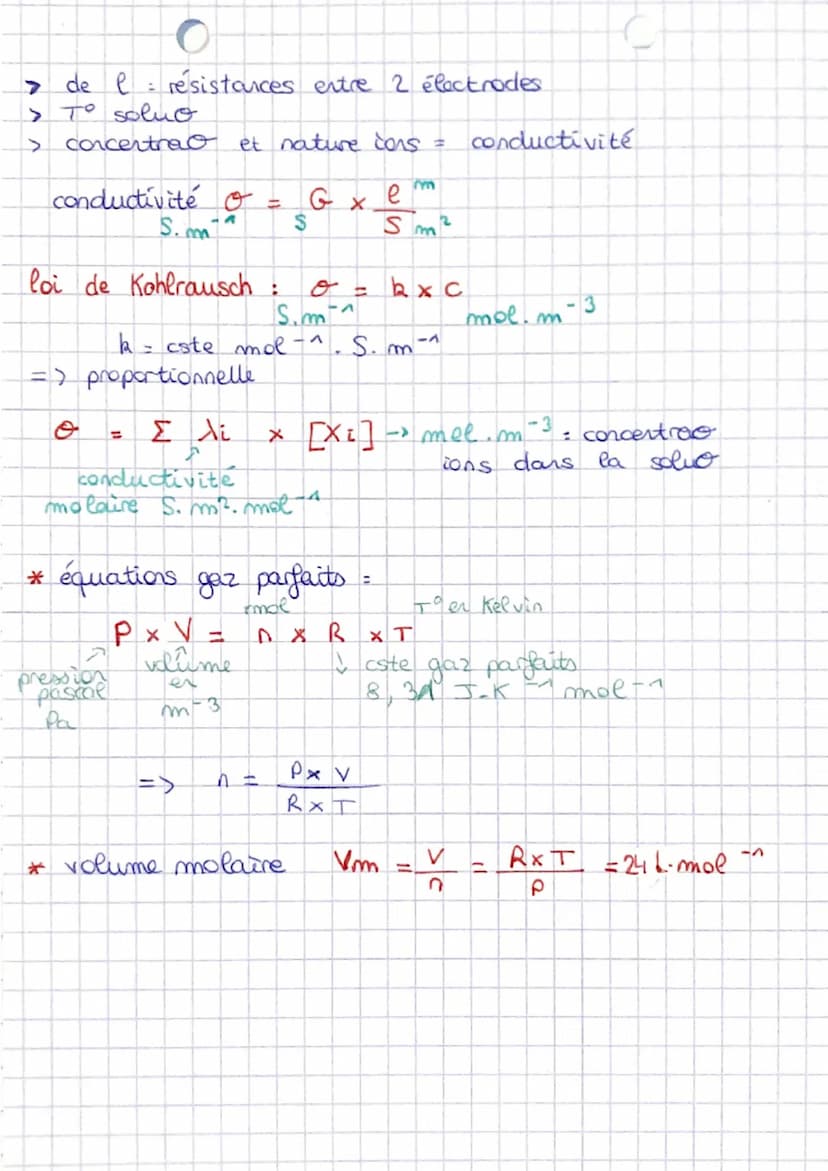 > de l : résistances entre 2 électrodes
> T° soluo
> concentrao et nature ions = conductivité
conductivité σ = G × e/S m m²
S.m⁻¹ S
loi de Kohlrausch : σ = k × C
S.m⁻¹ mol.m⁻³
k = cste mol⁻¹. S. m⁻¹
=> proportionnelle
σ = Σ λi × [Xi] → mol.m⁻³ = concentrao
ions dans la soluo
conductivité
molaire S. m². mol⁻¹
* équations gaz parfaits =
mol T° en Kelvin
P × V = n × R × T
pression pascal Pa
volûme en m⁻³
↓ cste gaz parfaits
8,31 J.K⁻¹ mol⁻¹
=> n = P × V / R × T
* volume molaire Vm = V/n = R×T/P = 24 L.mol⁻¹